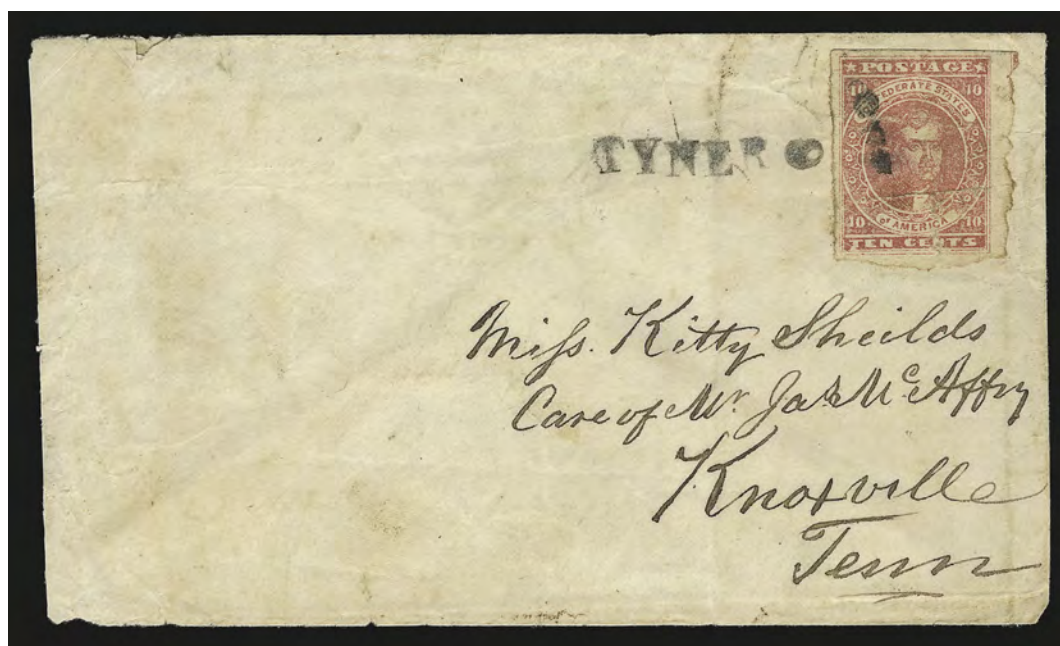 POSTAGE
10 10
CONFEDERATE STATES
TYNER
of AMERICA
10 10
TEN CENTS
Miss. Kitty Sheilds
Care of Mr Jas Mc Affry
Knoxville
Tenn